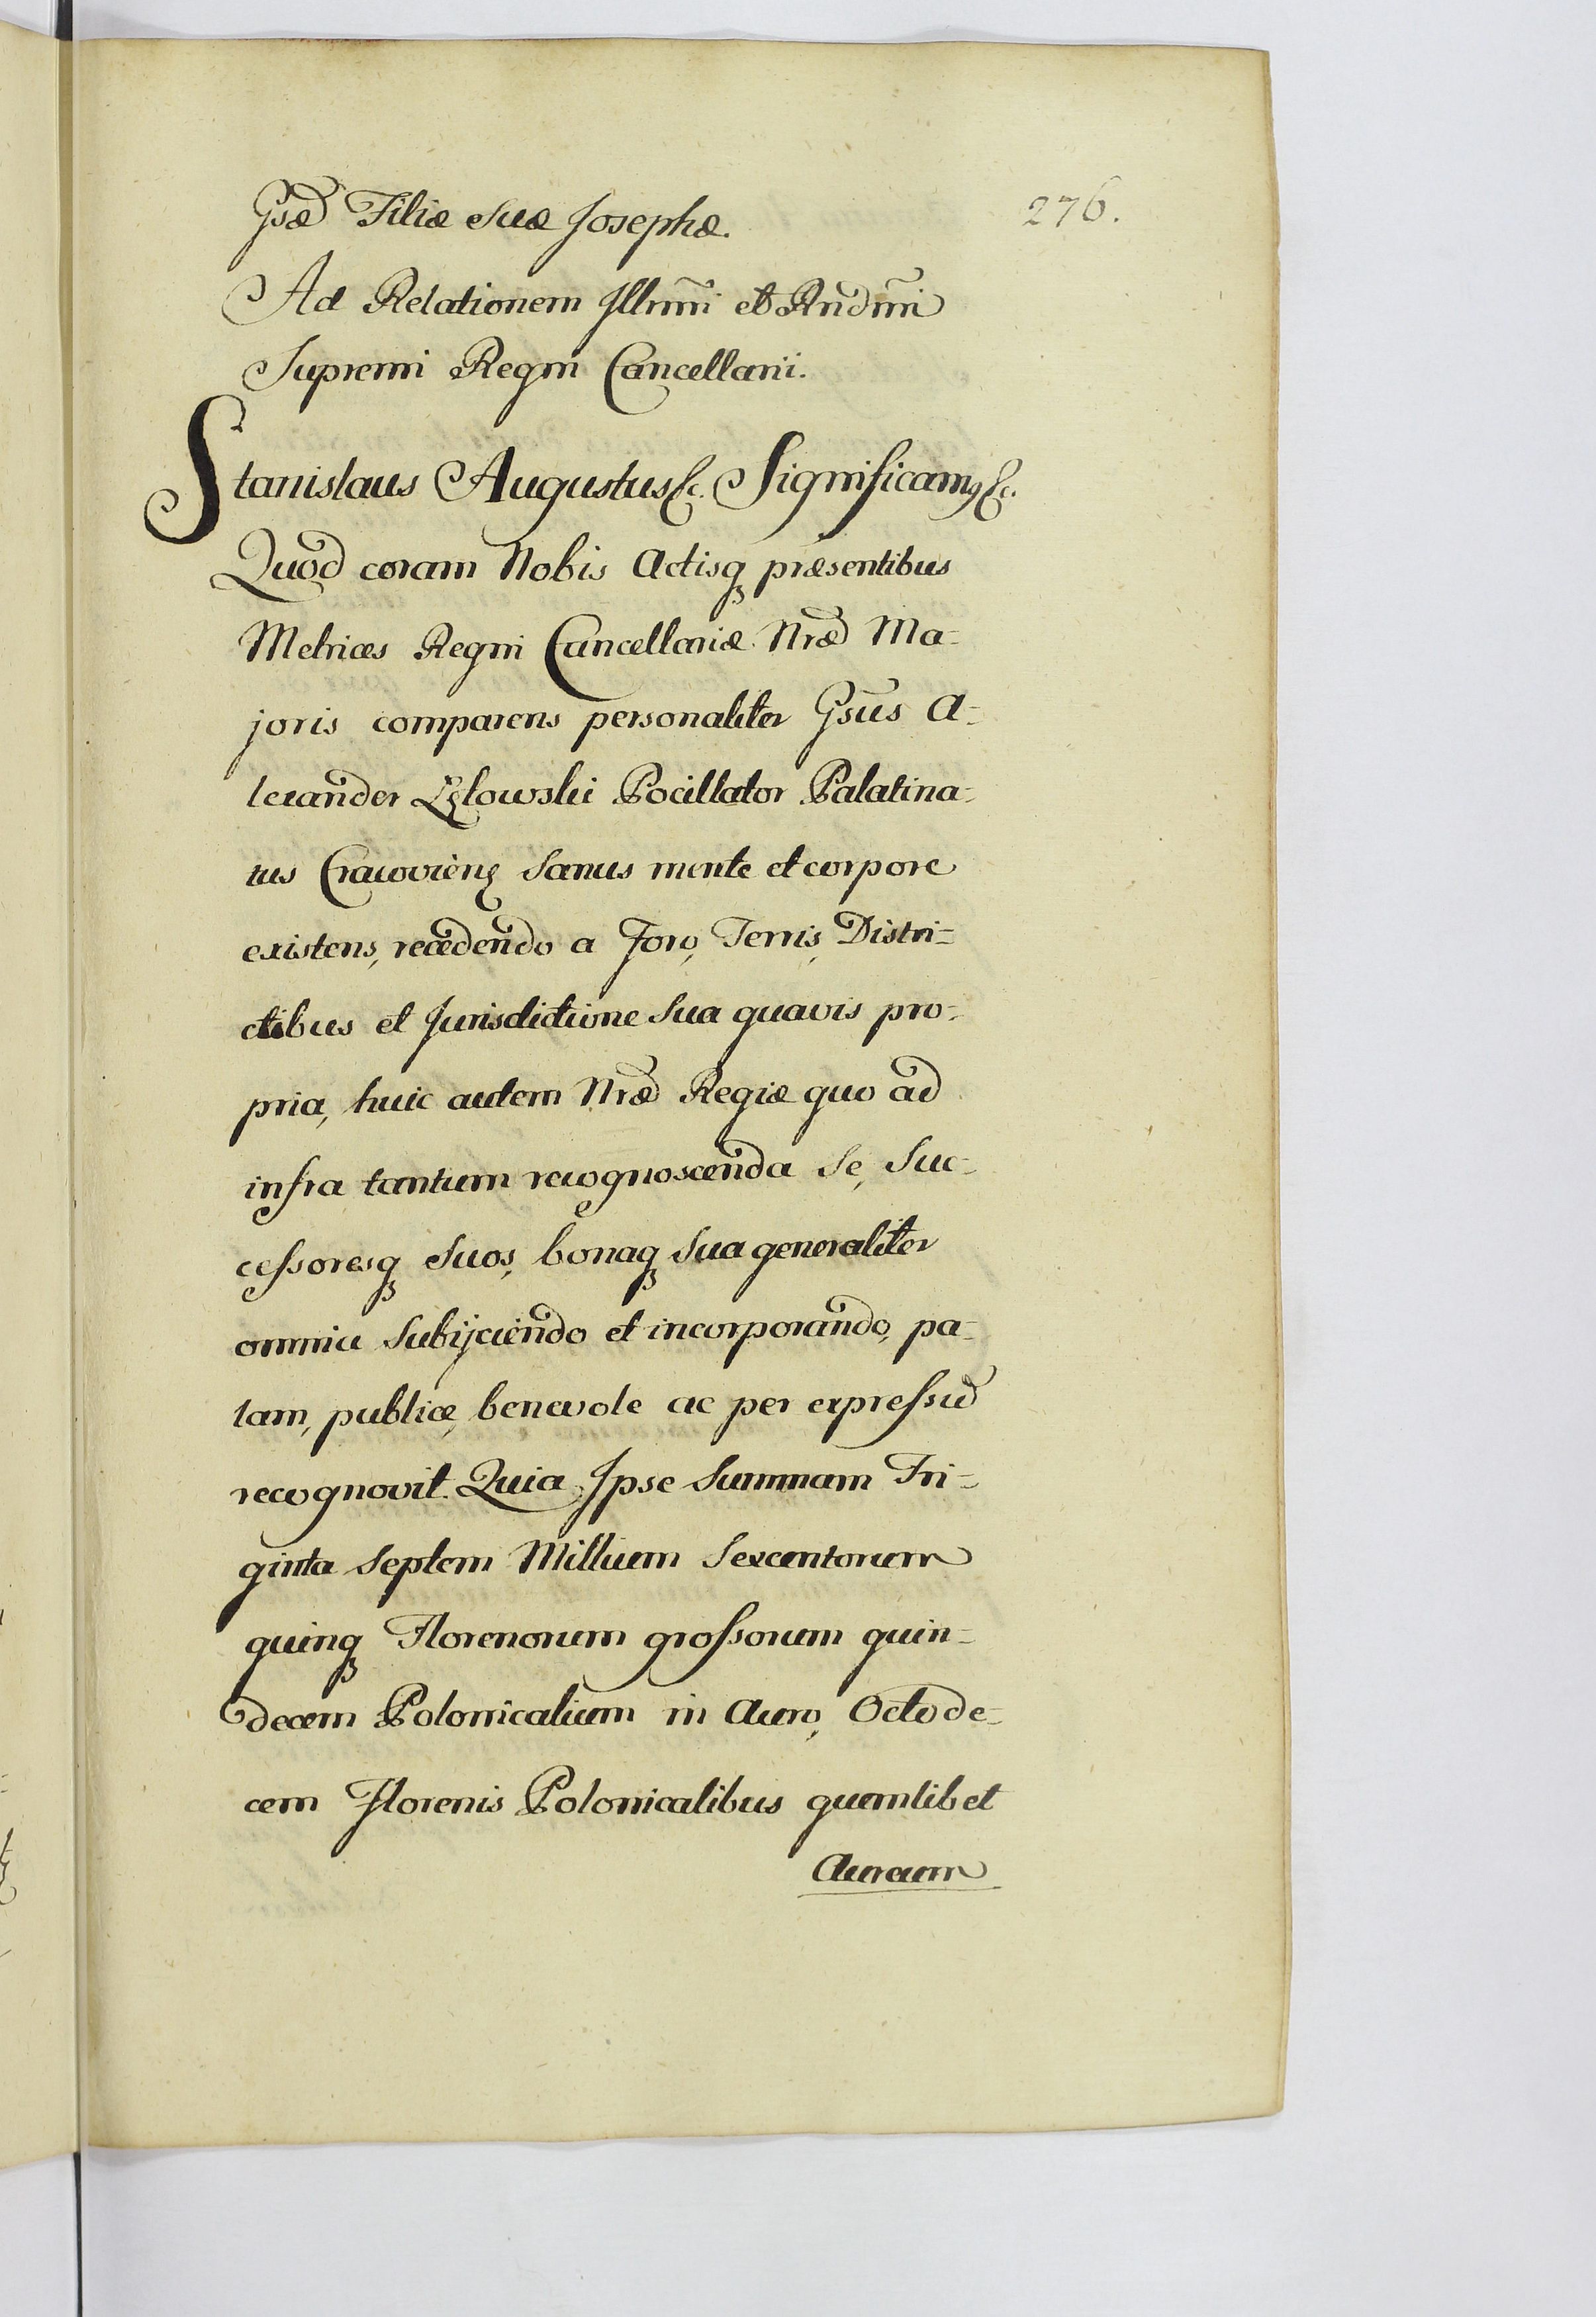 Gsæ Filiæ Suæ Josephæ.
276.
Ad Relationem Illrmi et Rndmi
Supremi Regni Cancellarii.
Stanislaus Augustus &c. Significamq &c.
Quod coram Nobis Actisq præsentibus
Metrices Regni Cancellariæ Nræ Ma-
joris comparens personaliter Gsus A-
lexander Łętowski Pocillator Palatina-
tus Cracovien sanus mente et corpore
existens, recedendo a Foro, Terris, Distri-
ctibus et Jurisdictione Sua quavis pro-
pria, huic autem Nræ Regiæ quo ad
infra tantum recognoscenda Se, Suc-
cessoresq Suos, bonaq Sua generaliter
omnia Subijciendo et incorporando, pa-
lam, publice, benevole ac per expressu
recognovit. Quia Ipse Summam Tri-
ginta Septem Millium Sexcentorum
quinq Florenorum grossorum quin-
decem Polonicalium in Auro, Octode-
cem Florenis Polonicalibus quemlibet
Aureum